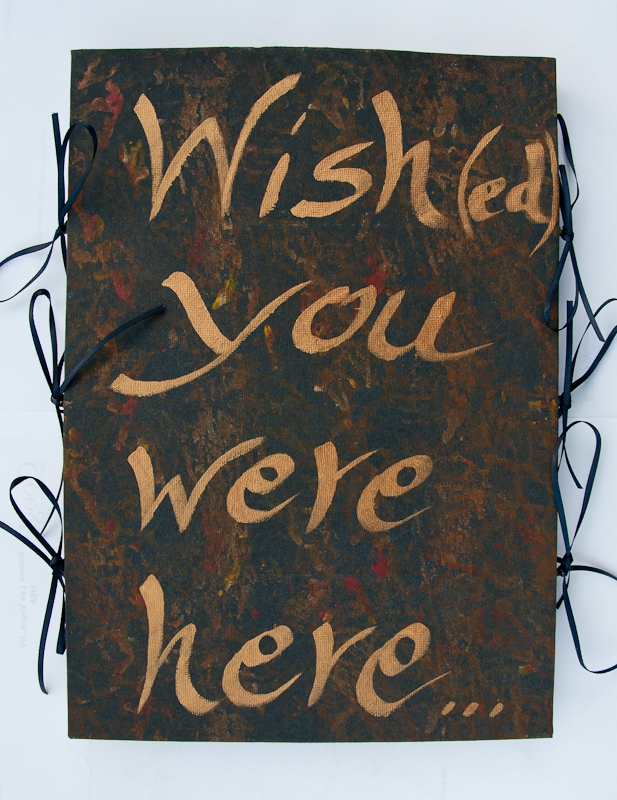 Wish(ed)
you
were
here...